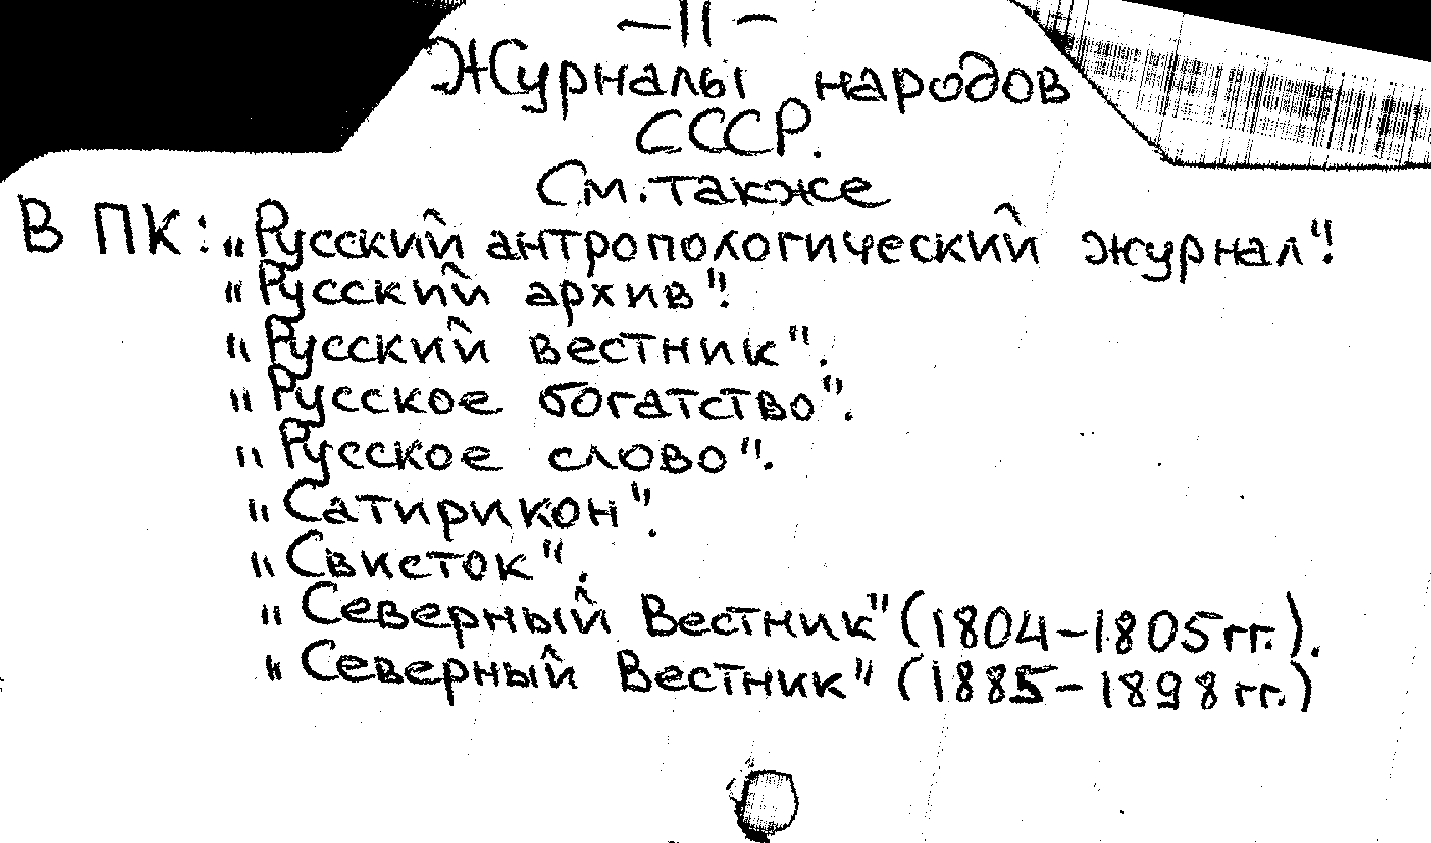 – 11 –
Журналы народов
СССР.
См. также
В ПК: "Русский антропологический журнал".
"Русский архив".
"Русский вестник".
"Русское богатство".
"Русское слово".
"Сатирикон".
"Свисток".
"Северный Вестник" (1804–1805 гг.).
"Северный Вестник" (1885–1898 гг.)